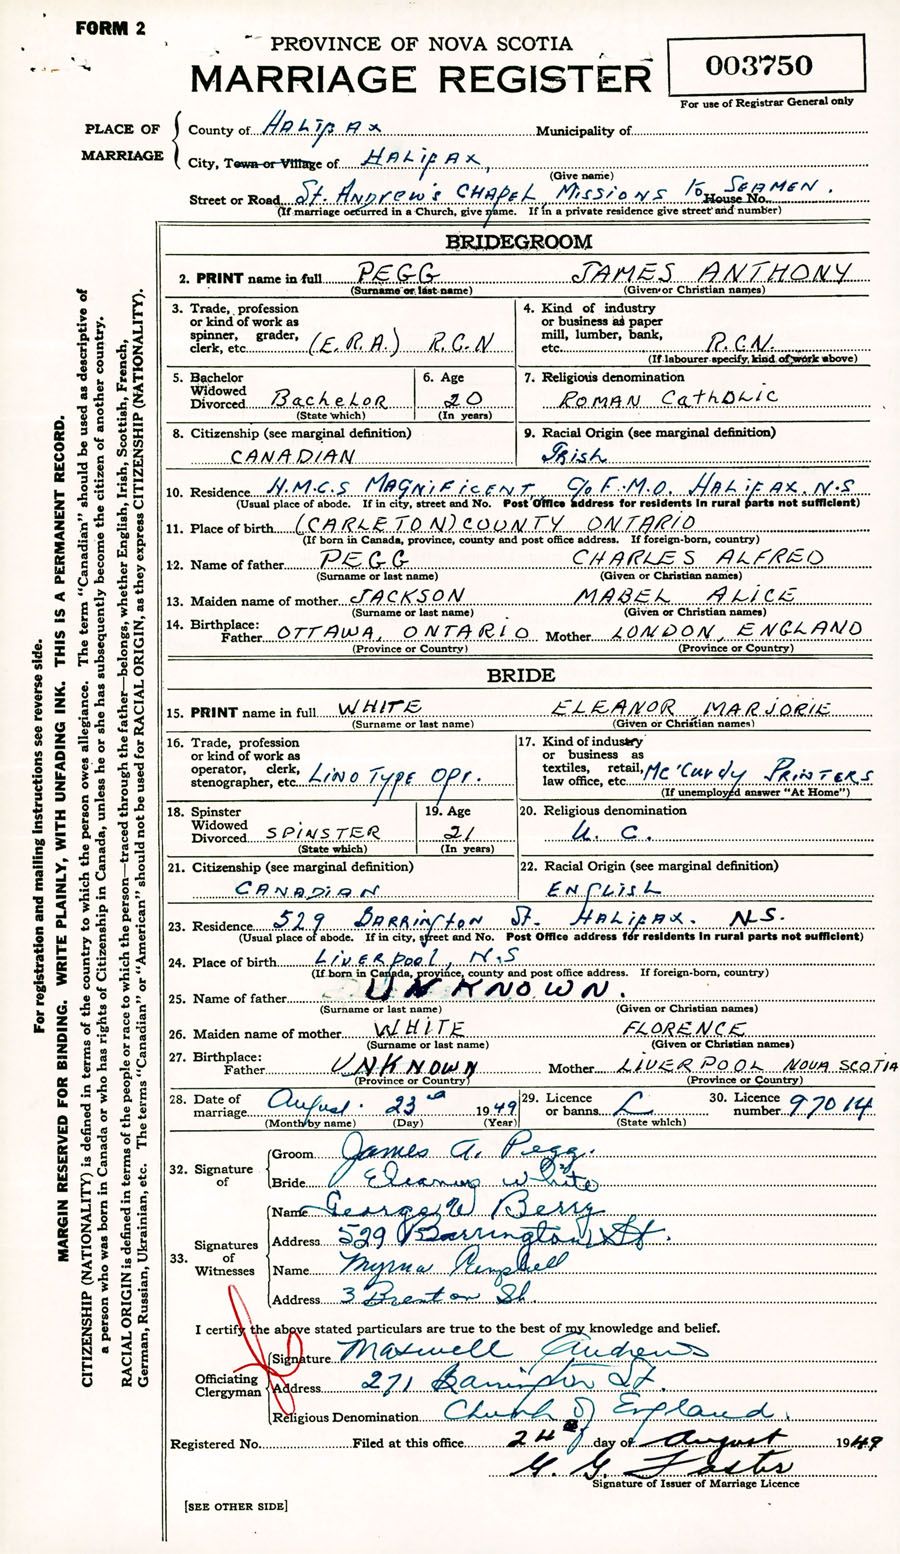 FORM 2
PROVINCE OF NOVA SCOTIA
MARRIAGE REGISTER
003750
For use of Registrar General only
PLACE OF MARRIAGE
County of HALIFAX Municipality of
City, Town or Village of HALIFAX,
(Give name)
Street or Road St. ANDREW'S CHAPEL, MISSIONS to SEAMEN. House No.
(If marriage occurred in a Church, give name. If in a private residence give street and number)
BRIDEGROOM
2. PRINT name in full PEGG JAMES ANTHONY
(Surname or last name) (Given or Christian names)
3. Trade, profession or kind of work as spinner, grader, clerk, etc. (E.R.A.) R.C.N
4. Kind of industry or business as paper mill, lumber, bank, etc. R.C.N.
(If labourer specify, kind of work above)
5. Bachelor Widowed Divorced BACHELOR
(State which)
6. Age 20
(In years)
7. Religious denomination
ROMAN CATHOLIC
8. Citizenship (see marginal definition)
CANADIAN
9. Racial Origin (see marginal definition)
Irish
10. Residence H.M.C.S MAGNIFICENT c/o F.M.O. HALIFAX. N.S
(Usual place of abode. If in city, street and No. Post Office address for residents in rural parts not sufficient)
11. Place of birth (CARLETON) COUNTY ONTARIO
(If born in Canada, province, county and post office address. If foreign-born, country)
12. Name of father PEGG CHARLES ALFRED
(Surname or last name) (Given or Christian names)
13. Maiden name of mother JACKSON MABEL ALICE
(Surname or last name) (Given or Christian names)
14. Birthplace:
Father OTTAWA, ONTARIO Mother LONDON, ENGLAND
(Province or Country) (Province or Country)
BRIDE
15. PRINT name in full WHITE ELEANOR MARJORIE
(Surname or last name) (Given or Christian names)
16. Trade, profession or kind of work as operator, clerk, stenographer, etc. LINO TYPE OPR.
17. Kind of industry or business as textiles, retail, law office, etc. Mc'Curdy PRINTERS
(If unemployed answer "At Home")
18. Spinster Widowed Divorced SPINSTER
(State which)
19. Age 21
(In years)
20. Religious denomination
U. C.
21. Citizenship (see marginal definition)
CANADIAN
22. Racial Origin (see marginal definition)
ENGLISH
23. Residence 529 BARRINGTON St. HALIFAX. N.S.
(Usual place of abode. If in city, street and No. Post Office address for residents in rural parts not sufficient)
24. Place of birth LIVERPOOL, N.S
(If born in Canada, province, county and post office address. If foreign-born, country)
25. Name of father UNKNOWN.
(Surname or last name) (Given or Christian names)
26. Maiden name of mother WHITE FLORENCE
(Surname or last name) (Given or Christian names)
27. Birthplace:
Father UNKNOWN Mother LIVERPOOL NOVA SCOTIA
(Province or Country) (Province or Country)
28. Date of marriage August. 23rd 1949
(Month by name) (Day) (Year)
29. Licence or banns L
(State which)
30. Licence number 97014
32. Signature of
Groom James A. Pegg.
Bride Eleanor White
33. Signatures of Witnesses
Name George W Berry
Address 529 Barrington St.
Name Myrna
Address 3 Brenton St.
I certify the above stated particulars are true to the best of my knowledge and belief.
Officiating Clergyman
Signature Maxwell Andrews
Address 271 Barrington St.
Religious Denomination Church of England.
Registered No. Filed at this office 24 day of August 1949
G. G. Foster
Signature of Issuer of Marriage Licence
[SEE OTHER SIDE]
For registration and mailing instructions see reverse side.
MARGIN RESERVED FOR BINDING. WRITE PLAINLY, WITH UNFADING INK. THIS IS A PERMANENT RECORD.
CITIZENSHIP (NATIONALITY) is defined in terms of the country to which the person owes allegiance. The term "Canadian" should be used as descriptive of
a person who was born in Canada or who has rights of Citizenship in Canada, unless he or she has subsequently become the citizen of another country.
RACIAL ORIGIN is defined in terms of the people or race to which the person—traced through the father—belongs, whether English, Irish, Scottish, French,
German, Russian, Ukrainian, etc. The terms "Canadian" or "American" should not be used for RACIAL ORIGIN, as they express CITIZENSHIP (NATIONALITY).